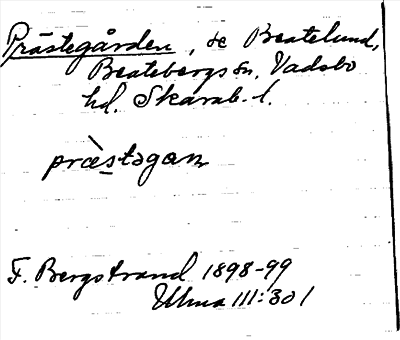 Prästegården, se Beatelund,
Beatebergs sn, Vadsbo
hd, Skarab. l.
præ̀stəgan
F. Bergstrand 1898-99
Ulma 111:301